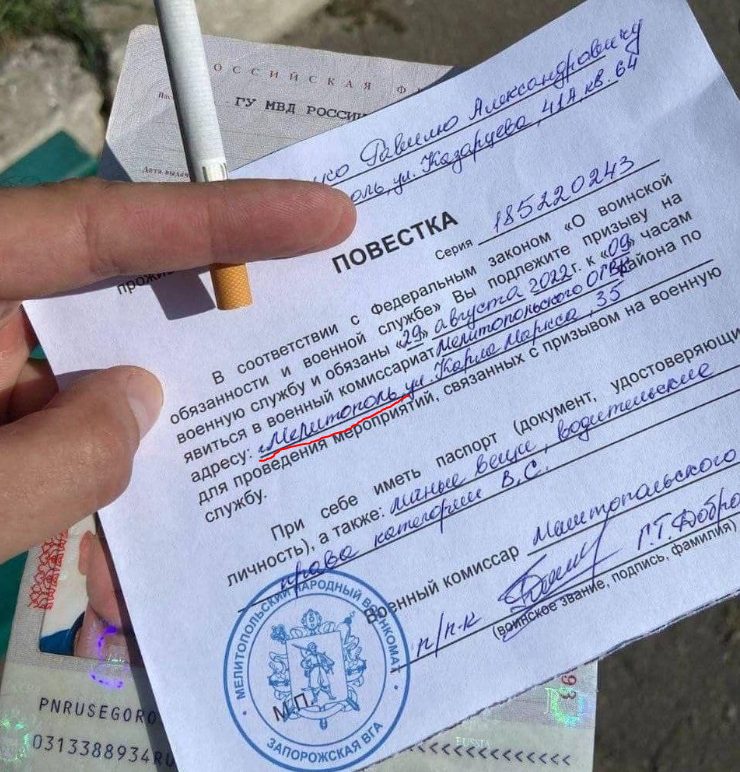 РОССИЙСКАЯ Ф
ГУ МВД РОССИИ
Дата выдачи
ко Равилю Александровичу
оль, ул. Казарцева, 41А, кв. 64
прожив
ПОВЕСТКА
Серия 185220243
В соответствии с Федеральным законом «О воинской
обязанности и военной службе» Вы подлежите призыву на
военную службу и обязаны «29» августа 2022г. к «09» часам
явиться в военный комиссариат Мелитопольского ОГВК района по
адресу: г. Мелитополь ул. Карла Маркса, 35
для проведения мероприятий, связанных с призывом на военную
службу.
При себе иметь паспорт (документ, удостоверяющи
личность), а также: личные вещи, водительские
права категории В, С.
Военный комиссар Мелитопольского
п/п-к Г.Т. Добро
(воинское звание, подпись, фамилия)
М.П.
МЕЛИТОПОЛЬСКИЙ НАРОДНЫЙ ВОЕНКОМАТ
ЗАПОРОЖСКАЯ ВГА
PNRUSEGORO
0313388934RU
RUSSIA
<<<<<<<<<<<<
93